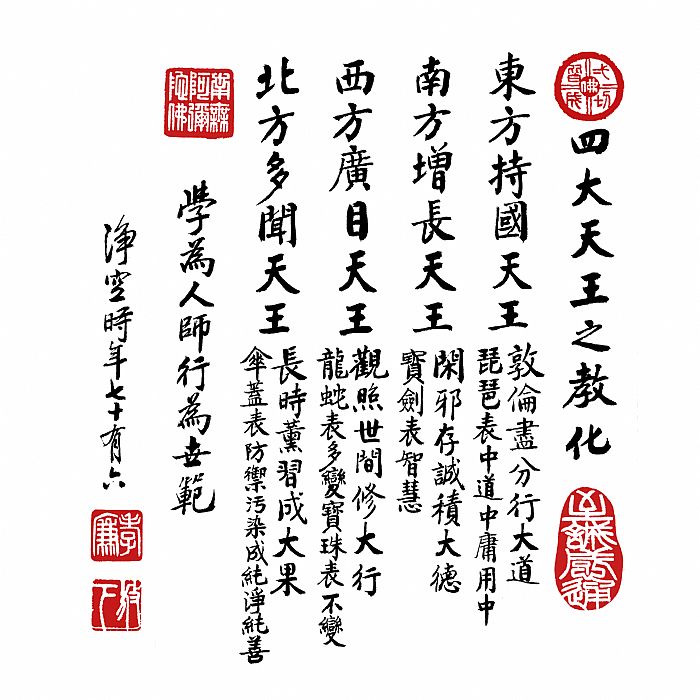 四大天王之教化
至誠感通
東方持國天王
敦倫盡分行大道
琵琶表中道中庸用中
南方增長天王
閑邪存誠積大德
寶劍表智慧
西方廣目天王
觀照世間修大行
龍蛇表多變寶珠表不變
北方多聞天王
長時薰習成大果
傘蓋表防禦污染成純淨純善
南無阿彌陀佛
學為人師行為世範
淨空時年七十有六
孝廉
放下